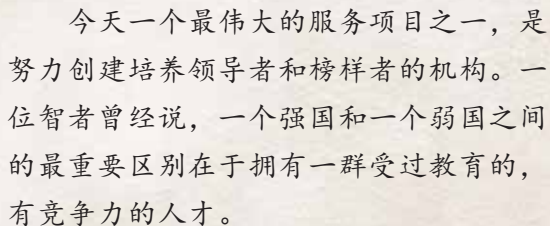 今天一个最伟大的服务项目之一，是
努力创建培养领导者和榜样者的机构。一
位智者曾经说，一个强国和一个弱国之间
的最重要区别在于拥有一群受过教育的，
有竞争力的人才。